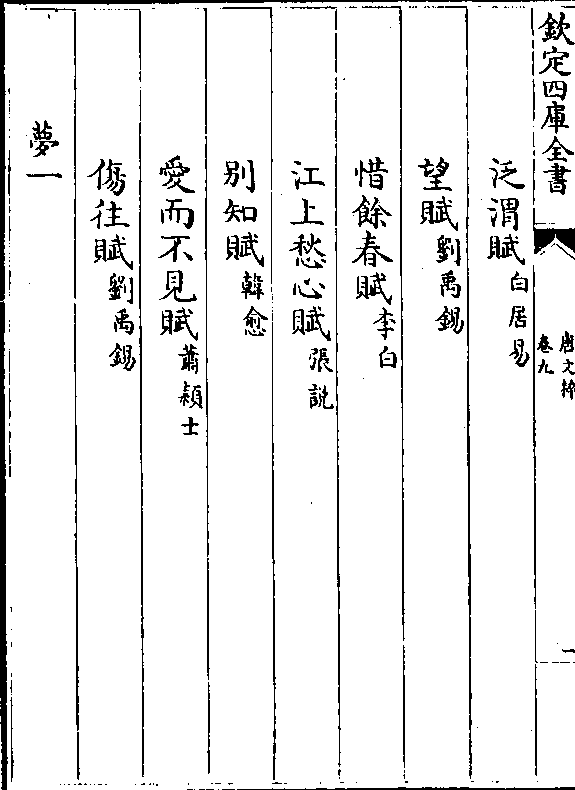 欽定四庫全書
唐文粹
卷九
一
泛渭賦 白居易
望賦 劉禹錫
惜餘春賦 李白
江上愁心賦 張說
別知賦 韓愈
愛而不見賦 蕭穎士
傷往賦 劉禹錫
夢一